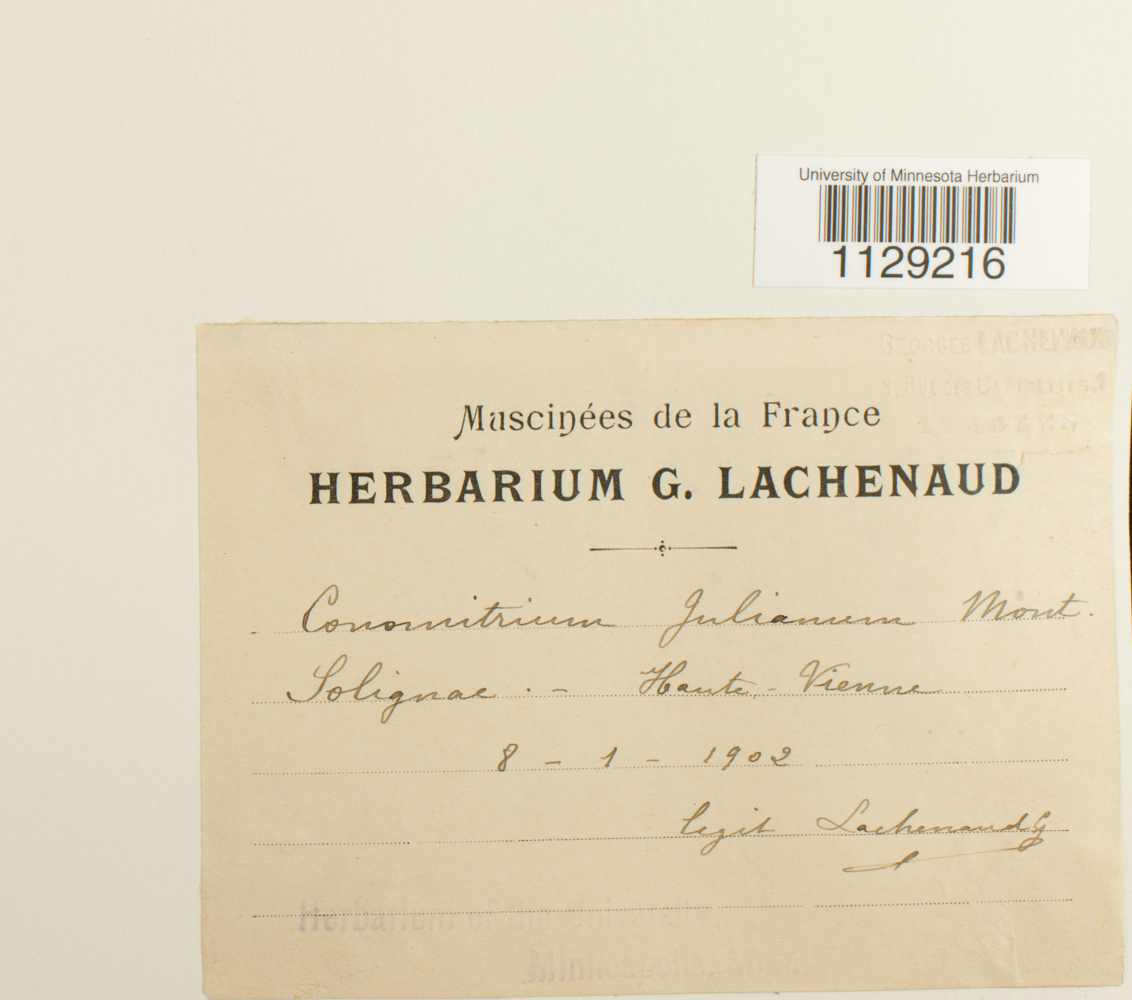 University of Minnesota Herbarium
1129216
GEORGES LACHENAUD
Muscinées de la France
HERBARIUM G. LACHENAUD
Conomitrium Julianum Mont.
Solignac. - Haute-Vienne
8 - 1 - 1902
legit Lachenaud G
Herbarium of the University
Minneapolis, Minn.